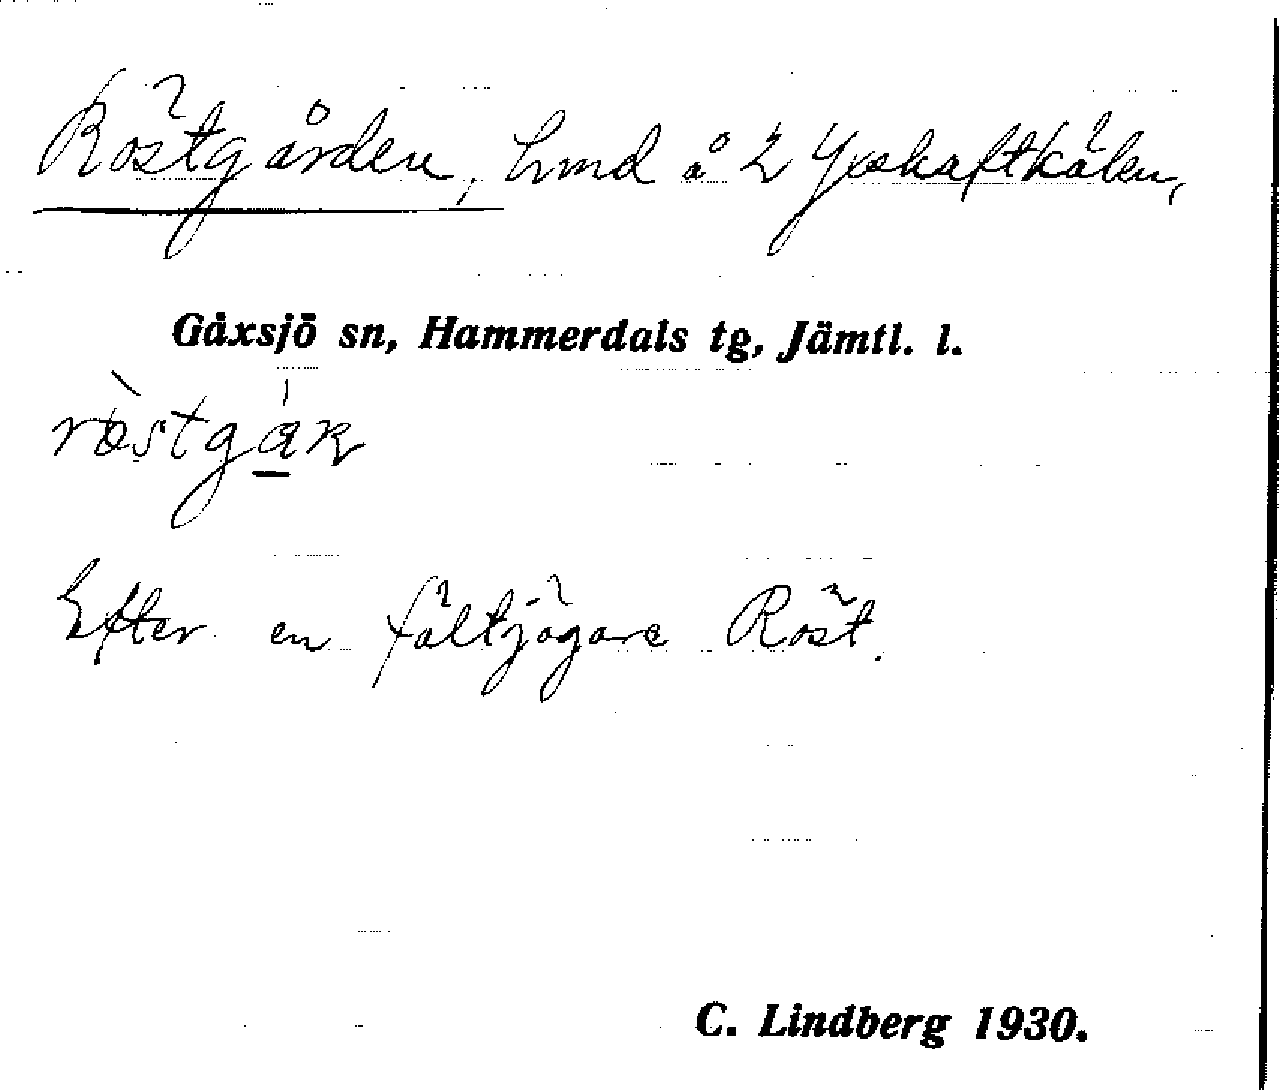 Röstgården, hmd å 2 Yxskaftkälen,
Gåxsjö sn, Hammerdals tg, Jämtl. l.
Efter en fältjägare Röst.
C. Lindberg 1930.